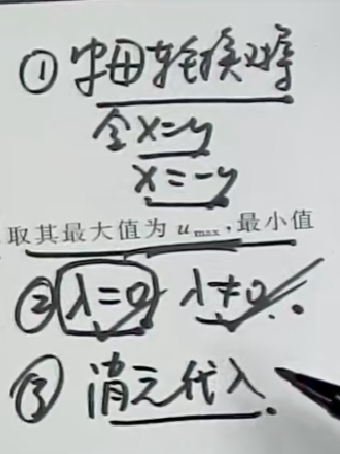 ① 字母轮换对等
令x=y
x=-y
取其最大值为 u max,最小值
② λ=0 λ≠0.
③ 消元代入.